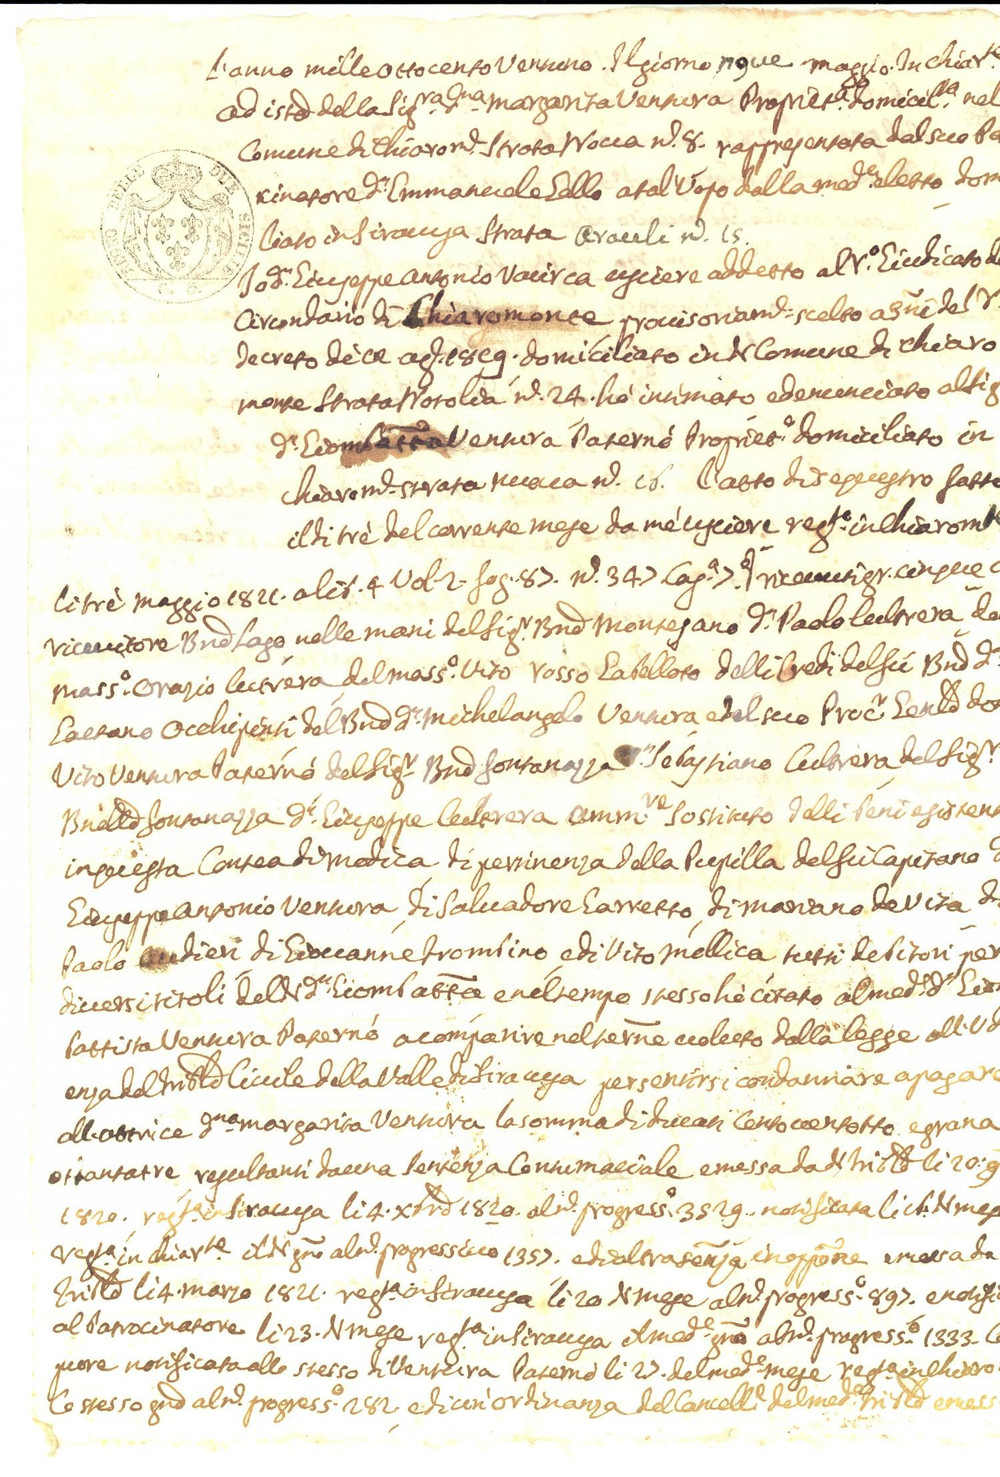 L'anno mille Otto cento Ventuno. Il giorno nove maggio. In Chiar.te
ad ist.a della Sig.ra D.na Margarita Ventura Propriet.a domicil.ta nel
Comune di Chiarom.te Strata Nocca n.o 8. rappresentata dal suo Pa
cinatore D.n Emmanuele Gallo a tal Uopo dalla med.a eletto dom
ciato in Siracusa Strata Araceli n. 15.
Io D.n Giuseppe Antonio Vacirca usciere addetto al R.o Giudicato d
Circondario di Chiaromonte provisoriam.te scelto a del R.
decreto de ag. 1819. domiciliato in d.o Comune di Chiaro
monte Strata n. 24. hò intimato e denunciato al Sig
D.n Giombatt.a Ventura Paternò Propriet.o domiciliato in
Chiarom.te strata n. 16. L'atto di sequestro fatto
il di tré del corrente mese da mé usciere reg.to in Chiaromt
li tré maggio 1821. a lib. 4 Vol. 2. fog. 87. n. 347 Cas.a 7.a ricevuti gr. cinque
ricevitore Lago nelle mani del Sig.r B.ne Montesano D.n Paolo Cultrera da
mass.o Orazio Cultrera, del mass.o Vito rosso Gabelloto delli Eredi del fù B.ne D.n
Gaetano Occhipinti del B.ne D.n Michelangelo Ventura e del suo Proc.r Gen.le do
Vito Ventura Paternò del Sig.r B.ne Fontanazza D.n Sebastiano Cultrera del Sig.r
Fontanazza D.n Giuseppe Cultrera Amm.re Sostituto delli Beni esisten
in questa Contea di Modica di pertinenza della Pupilla del fù Capitano D
Giuseppe Antonio Ventura, di Salvadore Garretto, di Mariano de Vita di
Paolo di Giovanne trombino, e di Vito Mellica tutti debitori per
diversi titoli del d.o D.n Giombatt.a e nel tempo stesso hò citato al med.o D.n Gio
Battista Ventura Paternò a comparire nel termine voluto dalla legge all'Ud
enza del Trib.le Civile della Valle di Siracusa per sentirsi condannare a pagare
all'attrice D.na Margarita Ventura la somma di ducati Cento ventotto e grana
ottantatre resultanti da una Sentenza Contumaciale emessa da d.o Trib.le li 20. 9
1820. reg.ta in Siracusa li 4. Xbre 1820. al n. progress.o 3529. notificata li 16. d.o mese
reg.ta in Chiar.te il d.o gno al n. progressivo 1357. ed altra Sentenza in oppone emessa da
Trib.le li 4. marzo 1821. reg.ta in Siracusa li 20 d.o mese al n. progress.o 897. e notifi
al Patrocinatore li 23. d.o mese reg.ta in Siracusa il med.o gno al n. progress.o 1333.
pure notificata allo stesso di Ventura Paternò li 27. del med.o mese reg.ta in Chiaro
lo stesso al n. progress.o 282 e di un'ordinanza del Cancell.e del med.o Trib.le emess